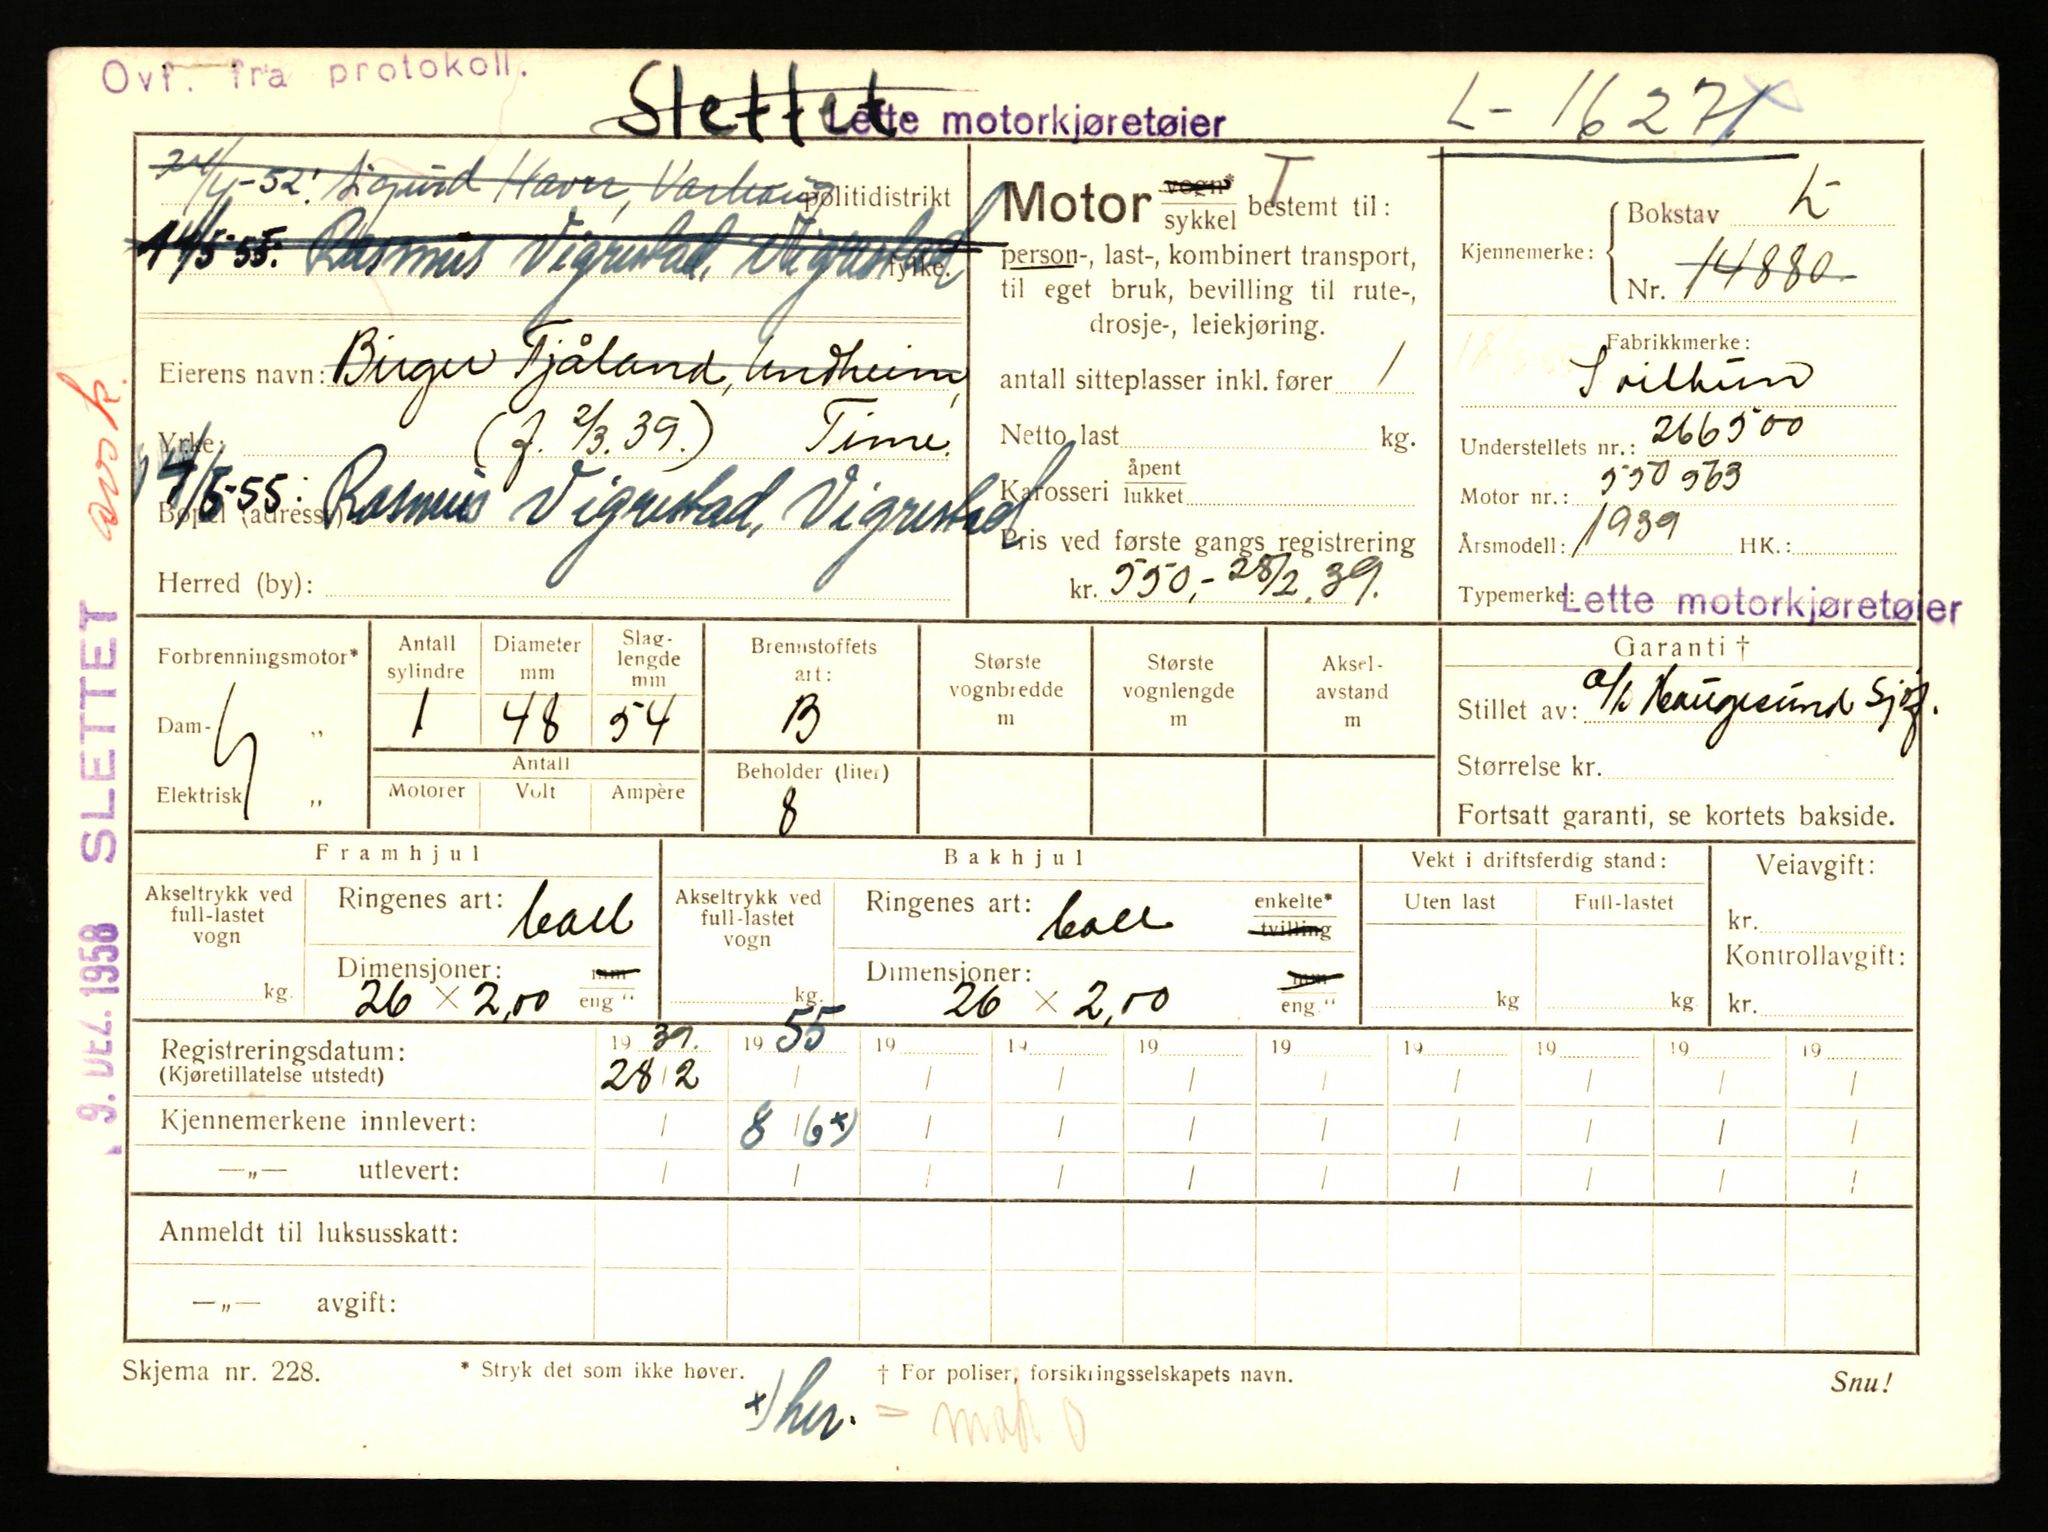 Ovf. fra protokoll.
Slettet
Lette motorkjøretøier
L- 16271
24/4-52: Sigurd Havn, Varhaug
politidistrikt
14/5-55: Rasmus Vigrestad, Vigrestad
fylke.
Eierens navn: Birger Tjåland, Undheim,
Yrke: (f. 2/3.39.) Time.
14/5-55: Rasmus Vigrestad, Vigrestad
Bopel (adresse)
Herred (by):
Motor vogn* sykkel bestemt til:
T
person-, last-, kombinert transport,
til eget bruk, bevilling til rute-,
drosje-, leiekjøring.
antall sitteplasser inkl. fører 1
Netto last kg.
Karosseri åpent lukket
Pris ved første gangs registrering
kr. 550,- 28/2.39.
Kjennemerke: Bokstav L
Nr. 14880
Fabrikkmerke:
Svithun
Understellets nr.: 266500
Motor nr.: 550563
Årsmodell: 1939 HK.:
Typemerke:
Lette motorkjøretøier
Forbrenningsmotor*
Dam- „
Elektrisk „
Antall sylindre
1
Diameter mm
48
Slag-lengde mm
54
Antall
Motorer Volt Ampère
Brennstoffets art:
B
Beholder (liter)
8
Største vognbredde m
Største vognlengde m
Aksel-avstand m
Garanti †
Stillet av: a/s Haugesund Sjøf.
Størrelse kr.
Fortsatt garanti, se kortets bakside.
Framhjul
Akseltrykk ved full-lastet vogn
kg.
Ringenes art: Coll
Dimensjoner: mm
26 × 2,00 eng "
Bakhjul
Akseltrykk ved full-lastet vogn
kg.
Ringenes art: Coll enkelte* tvilling
Dimensjoner: mm
26 × 2,00 eng "
Vekt i driftsferdig stand:
Uten last Full-lastet
kg kg.
Veiavgift:
kr.
Kontrollavgift:
kr.
Registreringsdatum: 19 39. 19 55 19 19 19 19 19 19 19 19
(Kjøretillatelse utstedt) 28/2 / / / / / / / / /
Kjennemerkene innlevert: / 8/6 x) / / / / / / / /
—„— utlevert: / / / / / / / / / /
Anmeldt til luksusskatt:
—„— avgift:
Skjema nr. 228.
* Stryk det som ikke høver.
† For poliser, forsikringsselskapets navn.
Snu!
x) her. =
avsk.
9. DEZ. 1958 SLETTET